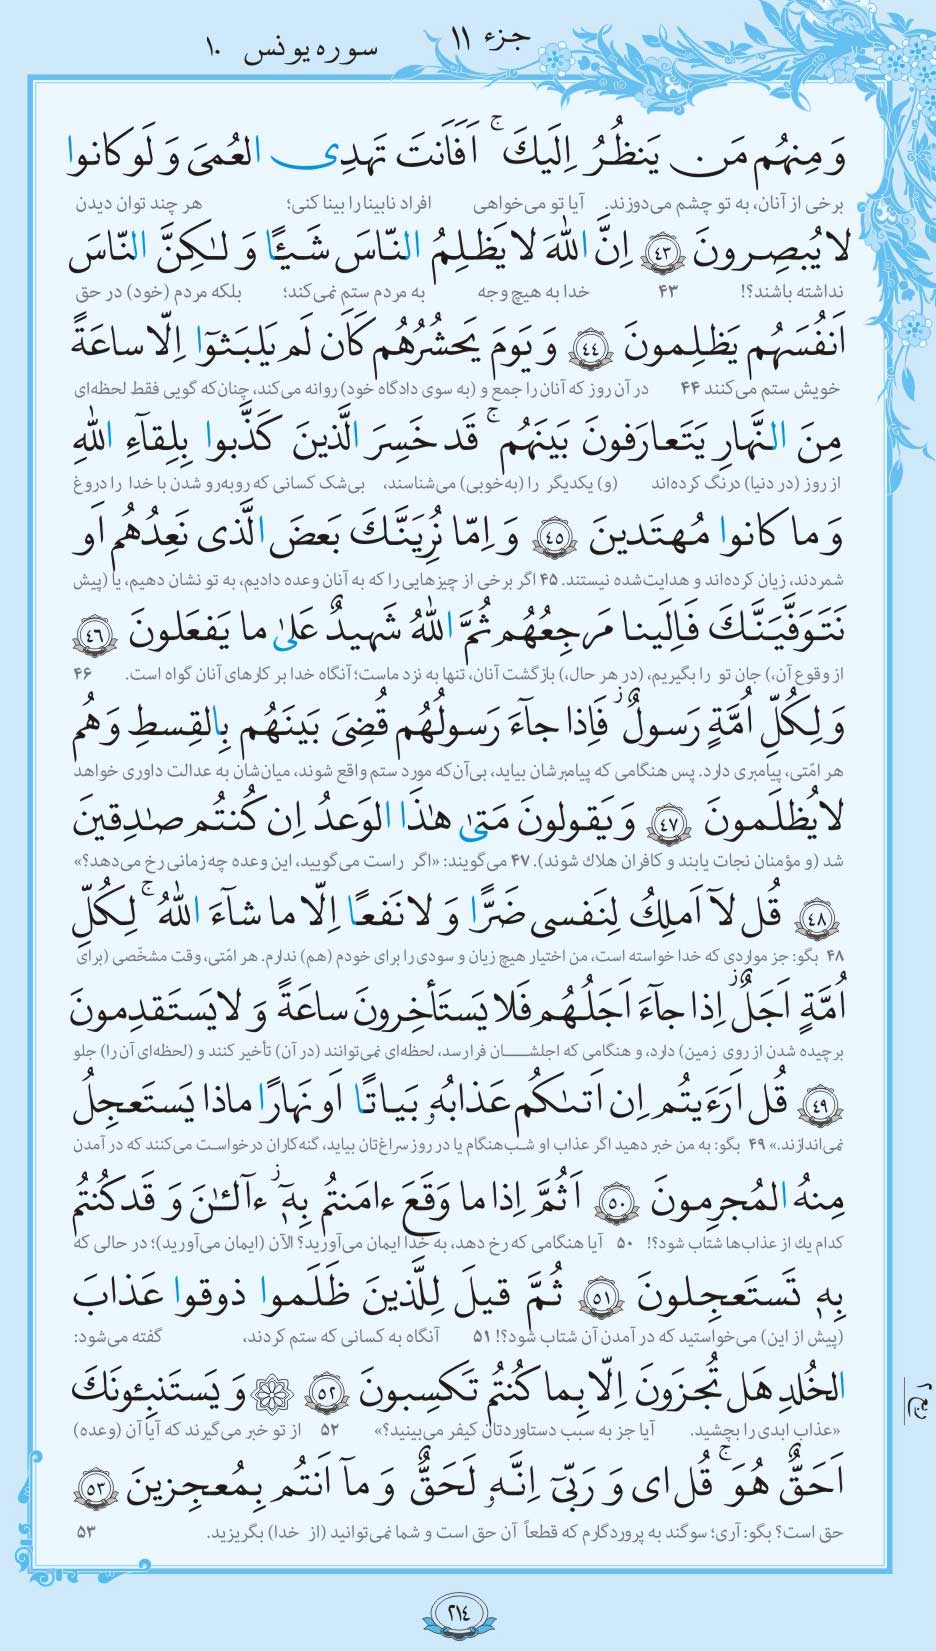 سوره یونس ۱۰
جزء ۱۱
وَ مِنهُم مَن یَنظُرُ اِلَیكَ ۚ اَفَاَنتَ تَهدِی العُمیَ وَ لَو کانوا
برخی از آنان، به تو چشم می‌دوزند. آیا تو می‌خواهی افراد نابینا را بینا کنی؛ هر چند توان دیدن
لا یُبصِرونَ ﴿٤٣﴾ اِنَّ اللّٰهَ لا یَظلِمُ النّاسَ شَیـًٔا وَ لٰـکِنَّ النّاسَ
نداشته باشند؟! ۴۳ خدا به هیچ وجه به مردم ستم نمی‌کند؛ بلکه مردم (خود) در حق
اَنفُسَهُم یَظلِمونَ ﴿٤٤﴾ وَ یَومَ یَحشُرُهُم کَاَن لَم یَلبَثوٓا اِلّا ساعَةً
خویش ستم می‌کنند ۴۴ در آن روز که آنان را جمع و (به سوی دادگاه خود) روانه می‌کند، چنان‌که گویی فقط لحظه‌ای
مِنَ النَّهارِ یَتَعارَفونَ بَینَهُم ۚ قَد خَسِرَ الَّذینَ کَذَّبوا بِلِقآءِ اللّٰهِ
از روز (در دنیا) درنگ کرده‌اند (و) یکدیگر را (به‌خوبی) می‌شناسند، بی‌شک کسانی که روبه‌رو شدن با خدا را دروغ
وَ ما کانوا مُهتَدینَ ﴿٤٥﴾ وَ اِمّا نُرِیَنَّـكَ بَعضَ الَّذی نَعِدُهُم اَو
شمردند، زیان کرده‌اند و هدایت‌شده نیستند. ۴۵ اگر برخی از چیزهایی را که به آنان وعده دادیم، به تو نشان دهیم، یا (پیش
نَتَوَفَّیَنَّـكَ فَـاِلَینا مَرجِعُهُم ثُمَّ اللّٰهُ شَهیدٌ عَلیٰ ما یَفعَلونَ ﴿٤٦﴾
از وقوع آن،) جان تو را بگیریم، (در هر حال،) بازگشت آنان، تنها به نزد ماست؛ آنگاه خدا بر کارهای آنان گواه است. ۴۶
وَ لِکُلِّ اُمَّةٍ رَسولٌ ۖ فَاِذا جآءَ رَسولُهُم قُضِیَ بَینَهُم بِالقِسطِ وَ هُم
هر امّتی، پیامبری دارد. پس هنگامی که پیامبرشان بیاید، بی‌آن‌که مورد ستم واقع شوند، میان‌شان به عدالت داوری خواهد
لا یُظلَمونَ ﴿٤٧﴾ وَ یَقولونَ مَتیٰ هٰذَا الوَعدُ اِن کُنتُم صٰدِقینَ
شد (و مؤمنان نجات یابند و کافران هلاك شوند). ۴۷ می‌گویند: «اگر راست می‌گویید، این وعده چه زمانی رخ می‌دهد؟»
﴿٤٨﴾ قُل لآ اَملِكُ لِنَفسی ضَرًّا وَ لا نَفعًا اِلّا ما شآءَ اللّٰهُ ۚ لِکُلِّ
۴۸ بگو: جز مواردی که خدا خواسته است، من اختیار هیچ زیان و سودی را برای خودم (هم) ندارم. هر امّتی، وقت مشخّصی (برای
اُمَّةٍ اَجَلٌ ۚ اِذا جآءَ اَجَلُـهُم فَلا یَستَأخِرونَ ساعَةً وَ لا یَستَقدِمونَ
برچیده شدن از روی زمین) دارد، و هنگامی که اجلشـــان فرا رسد، لحظه‌ای نمی‌توانند (در آن) تأخیر کنند و (لحظه‌ای آن را) جلو
﴿٤٩﴾ قُل اَرَءَیتُم اِن اَتٮٰکُم عَذابُهٗ بَیاتًا اَو نَهارًا ماذا یَستَعجِلُ
نمی‌اندازند.» ۴۹ بگو: به من خبر دهید اگر عذاب او شب‌هنگام یا در روز سراغ‌تان بیاید، گنه‌کاران درخواست می‌کنند که در آمدن
مِنهُ المُجرِمونَ ﴿٥٠﴾ اَثُمَّ اِذا ما وَقَعَ ءامَنتُم بِهٖٓ ۚ ءآلـٰٔنَ وَ قَد کُنتُم
کدام یك از عذاب‌ها شتاب شود؟! ۵۰ آیا هنگامی که رخ دهد، به خدا ایمان می‌آورید؟ الآن (ایمان می‌آورید)؛ در حالی که
بِهٖ تَستَعجِلونَ ﴿٥١﴾ ثُمَّ قیلَ لِلَّذینَ ظَلَموا ذوقوا عَذابَ
(پیش از این) می‌خواستید که در آمدن آن شتاب شود؟! ۵۱ آنگاه به کسانی که ستم کردند، گفته می‌شود:
الخُلدِ هَل تُجزَونَ اِلّا بِما کُنتُم تَکسِبونَ ﴿٥٢﴾ وَ یَستَنبِـٔونَكَ
«عذاب ابدی را بچشید. آیا جز به سبب دستاوردتان کیفر می‌بینید؟» ۵۲ از تو خبر می‌گیرند که آیا آن (وعده)
اَحَقٌّ هُوَ ۚ قُل ای وَ رَبّیٓ اِنَّهٗ لَحَقٌّ وَ مآ اَنتُم بِمُعجِزینَ ﴿٥٣﴾
حق است؟ بگو: آری؛ سوگند به پروردگارم که قطعاً آن حق است و شما نمی‌توانید (از خدا) بگریزید. ۵۳
٢١٤